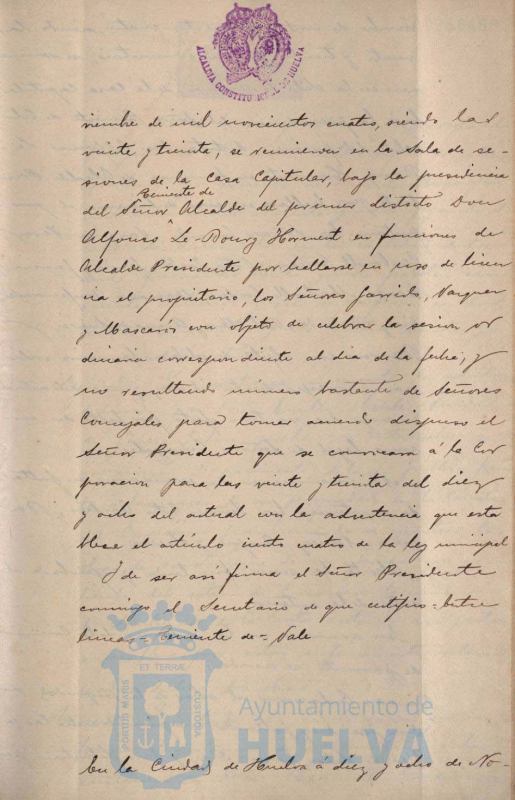 ALCALDIA CONSTITUCIONAL DE HUELVA
viembre de mil novecientos cuatro, siendo las
veinte y treinta, se reunieron en la Sala de se-
siones de la Casa Capitular, bajo la presidencia
Teniente de
del Señor Alcalde del primer distrito Don
Alfonso Le Bourg Horment en funciones de
Alcalde Presidente por hallarse en uso de licen
cia el propietario, los Señores Garrido, Vazquez
y Mascarós con objeto de celebrar la sesion or
dinaria correspondiente al dia de la fecha; y
no resultando número bastante de Señores
Concejales para tomar acuerdo dispuso el
Señor Presidente que se convocara á la Cor
poracion para las veinte y treinta del diez
y ocho del actual con la advertencia que esta
blece el artículo ciento cuatro de la ley municipal
Y de ser así firma el Señor Presidente
conmigo el Secretario de que certifico = Entre
lineas = Teniente de = Vale
PORTUS MARIS ET TERRÆ CUSTODIA
Ayuntamiento de
HUELVA
En la Ciudad de Huelva á diez y ocho de No-